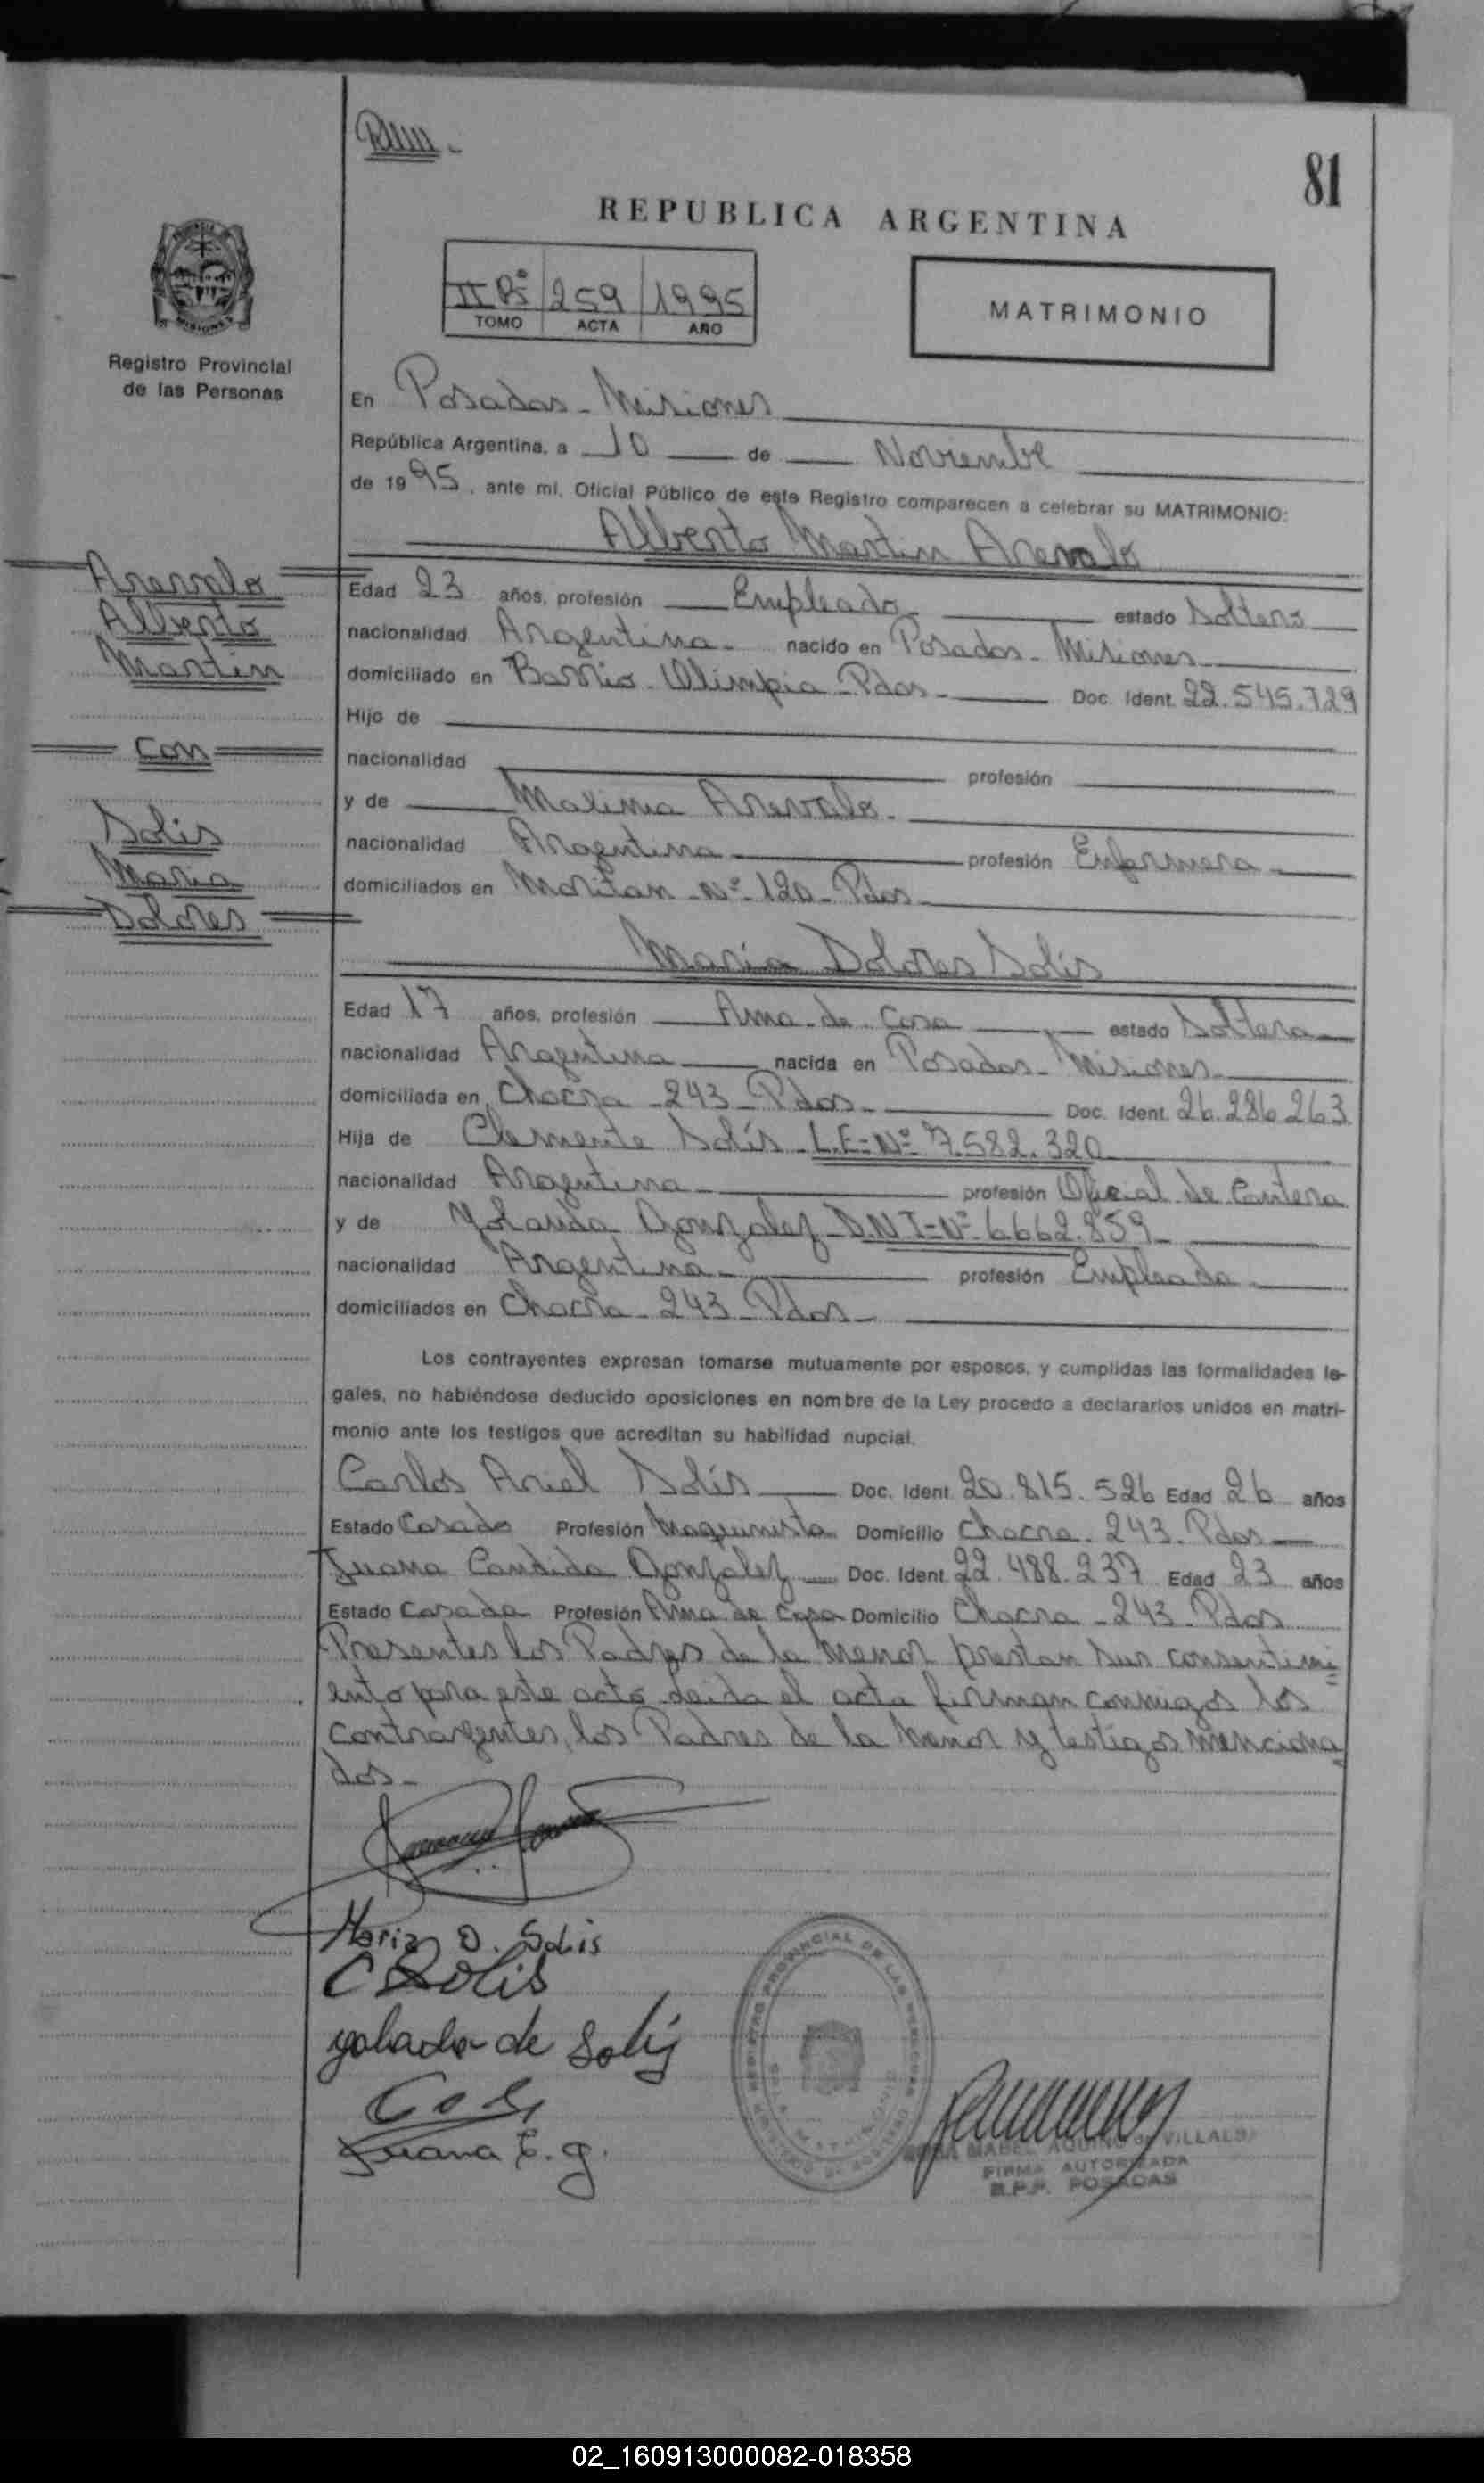 81
REPUBLICA ARGENTINA
II Bº 259 1995
TOMO ACTA AÑO
MATRIMONIO
MISIONES
Registro Provincial
de las Personas
En Posadas - Misiones
República Argentina, a 10 de Noviembre
de 1995, ante mí, Oficial Público de este Registro comparecen a celebrar su MATRIMONIO:
Alberto Martin Arevalo
Arevalo
Alberto
Martin
Con
Solis
Maria
Dolores
Edad 23 años, profesión Empleado estado Soltero
nacionalidad Argentina - nacido en Posadas - Misiones
domiciliado en Barrio Olimpia - Pdas - Doc. Ident. 22.545.729
Hijo de
nacionalidad profesión
y de Maxima Arevalo -
nacionalidad Argentina profesión Enfermera
domiciliados en Nº 120 - Pdas
Maria Dolores Solis
Edad 17 años, profesión Ama de Casa estado Soltera
nacionalidad Argentina nacida en Posadas - Misiones
domiciliada en Chacra 243 - Pdas - Doc. Ident. 26.286.263
Hija de Clemente Solís - L.E= Nº 7.582.320
nacionalidad Argentina profesión Oficial de Cantera
y de Yolanda Gonzalez - D.N.I= Nº 6.662.859
nacionalidad Argentina profesión Empleada
domiciliados en Chacra - 243 - Pdas -
Los contrayentes expresan tomarse mutuamente por esposos, y cumplidas las formalidades le-
gales, no habiéndose deducido oposiciones en nombre de la Ley procedo a declararlos unidos en matri-
monio ante los testigos que acreditan su habilidad nupcial.
Carlos Ariel Solís Doc. Ident. 20.815.526 Edad 26 años
Estado Casado Profesión Maquinista Domicilio Chacra 243. Pdas
Juana Candida Gonzalez Doc. Ident. 22.488.237 Edad 23 años
Estado Casada Profesión Ama de Casa Domicilio Chacra - 243 - Pdas
Presentes los Padres de la menor prestan sus consentimi=
ento para este acto leida el acta firman conmigo los
contrayentes, los Padres de la Menor y testigos menciona=
dos -
Maria D. Solis
C Solis
yolanda de Solis
Juana C. g.
REGISTRO PROVINCIAL DE LAS PERSONAS
MINISTERIO DE GOBIERNO
MABEL AQUINO de VILLALBA
FIRMA AUTORIZADA
R.P.P. POSADAS
02_160913000082-018358